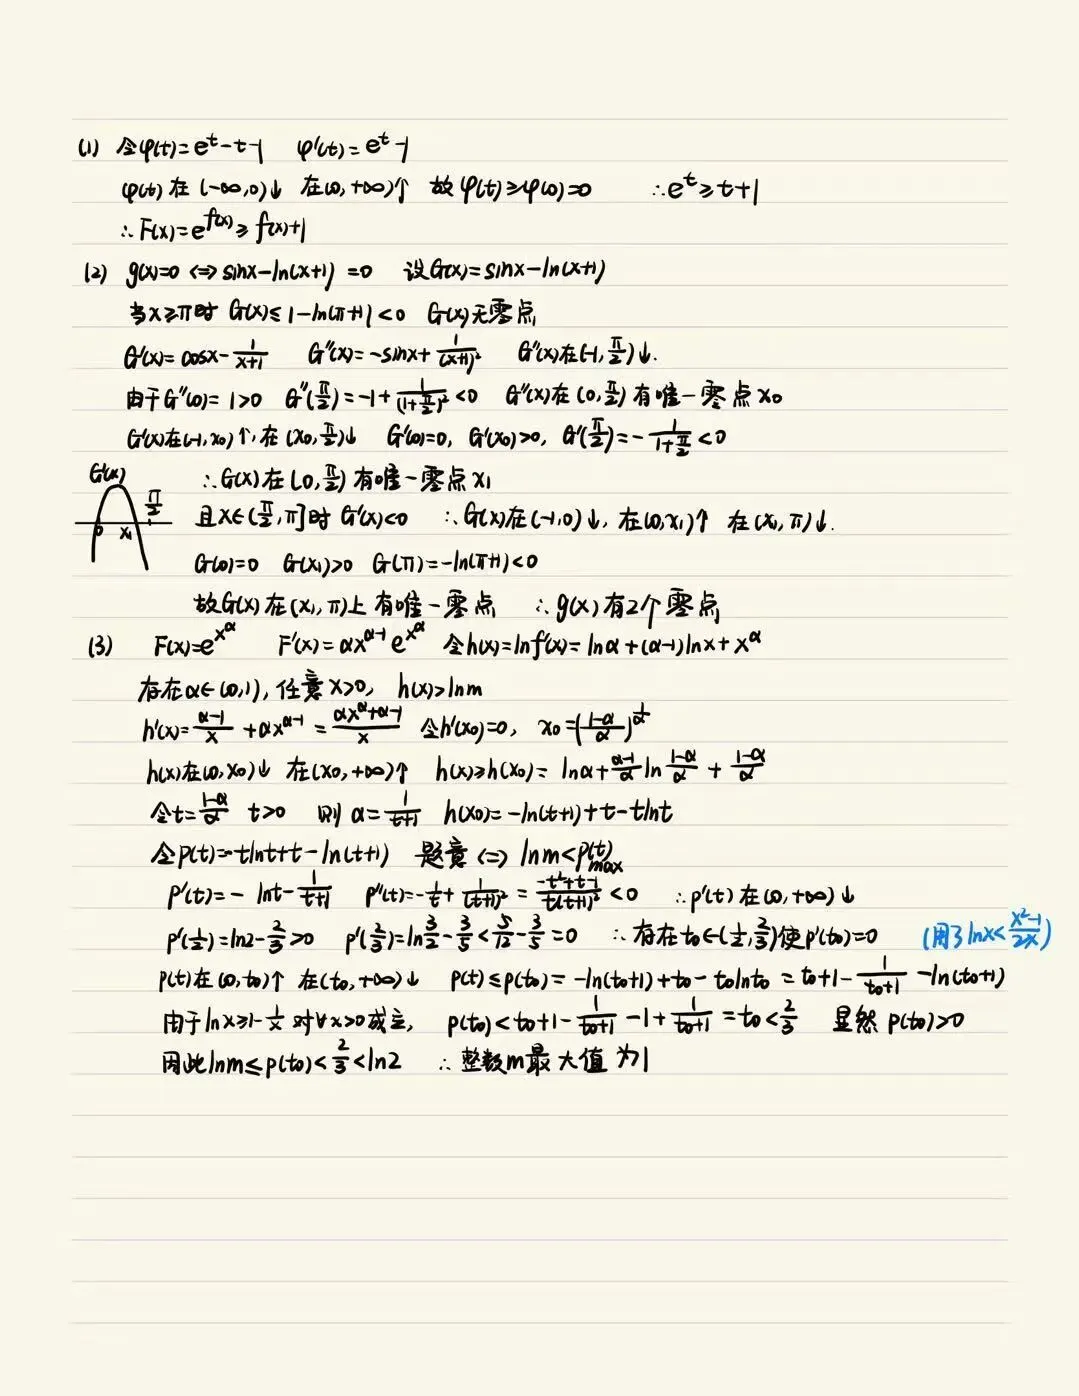 (1) 令φ(t)=e^t-t-1 φ'(t)=e^t-1
φ(t)在(-∞,0)↓ 在(0,+∞)↑ 故φ(t)≥φ(0)=0 ∴e^t≥t+1
∴F(x)=e^{f(x)}≥f(x)+1
(2) g(x)=0⇔sinx-ln(x+1)=0 设G(x)=sinx-ln(x+1)
当x≥π时 G(x)≤1-ln(π+1)<0 G(x)无零点
G'(x)=cosx-\frac{1}{x+1} G''(x)=-sinx+\frac{1}{(x+1)^2} G''(x)在(-1,\frac{π}{2})↓.
由于G''(0)=1>0 G''(\frac{π}{2})=-1+\frac{1}{(1+\frac{π}{2})^2}<0 G''(x)在(0,\frac{π}{2})有唯一零点x_0
G'(x)在(-1,x_0)↑,在(x_0,\frac{π}{2})↓ G'(0)=0, G'(x_0)>0, G'(\frac{π}{2})=-\frac{1}{1+\frac{π}{2}}<0
G'(x)
0 x_1 \frac{π}{2}
∴G'(x)在(0,\frac{π}{2})有唯一零点x_1
且x∈(\frac{π}{2},π]时 G'(x)<0 ∴G(x)在(-1,0)↓,在(0,x_1)↑ 在(x_1,π)↓.
G(0)=0 G(x_1)>0 G(π)=-ln(π+1)<0
故G(x)在(x_1,π)上有唯一零点 ∴g(x)有2个零点
(3) F(x)=e^{x^α} F'(x)=αx^{α-1}e^{x^α} 令h(x)=lnf'(x)=lnα+(α-1)lnx+x^α
存在α∈(0,1),任意x>0, h(x)>lnm
h'(x)=\frac{α-1}{x}+αx^{α-1}=\frac{αx^α+α-1}{x} 令h'(x_0)=0, x_0=(\frac{1-α}{α})^{\frac{1}{α}}
h(x)在(0,x_0)↓ 在(x_0,+∞)↑ h(x)≥h(x_0)=lnα+\frac{α-1}{α}ln\frac{1-α}{α}+\frac{1-α}{α}
令t=\frac{1-α}{α} t>0 则α=\frac{1}{t+1} h(x_0)=-ln(t+1)+t-tlnt
令p(t)=-tlnt+t-ln(t+1) 题意⇔lnm<p(t)_{max}
p'(t)=-lnt-\frac{1}{t+1} p''(t)=-\frac{1}{t}+\frac{1}{(t+1)^2}=\frac{-t^2+t-1}{t(t+1)^2}<0 ∴p'(t)在(0,+∞)↓
p'(\frac{1}{2})=ln2-\frac{2}{3}>0 p'(\frac{2}{3})=ln\frac{3}{2}-\frac{3}{5}<\frac{5}{12}-\frac{3}{5}=0 ∴存在t_0∈(\frac{1}{2},\frac{2}{3})使p'(t_0)=0 (用了lnx<\frac{x^2-1}{2x})
p(t)在(0,t_0)↑ 在(t_0,+∞)↓ p(t)≤p(t_0)=-ln(t_0+1)+t_0-t_0lnt_0=t_0+1-\frac{1}{t_0+1}-ln(t_0+1)
由于lnx≥1-\frac{1}{x}对∀x>0成立, p(t_0)<t_0+1-\frac{1}{t_0+1}-1+\frac{1}{t_0+1}=t_0<\frac{2}{3} 显然p(t_0)>0
因此lnm≤p(t_0)<\frac{2}{3}<ln2 ∴整数m最大值为1